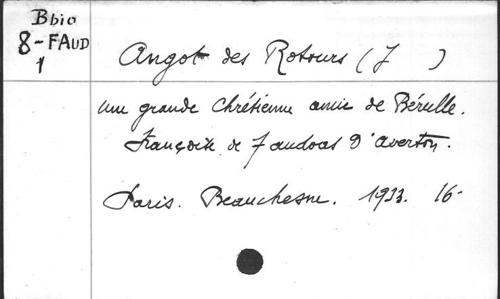 Bbio
8-FAUD
1
Angot des Rotours (J )
une grande Chrétienne amie de Bérulle.
Françoise de Faudoas d'Averton.
Paris. Beauchesne. 1933. 16-